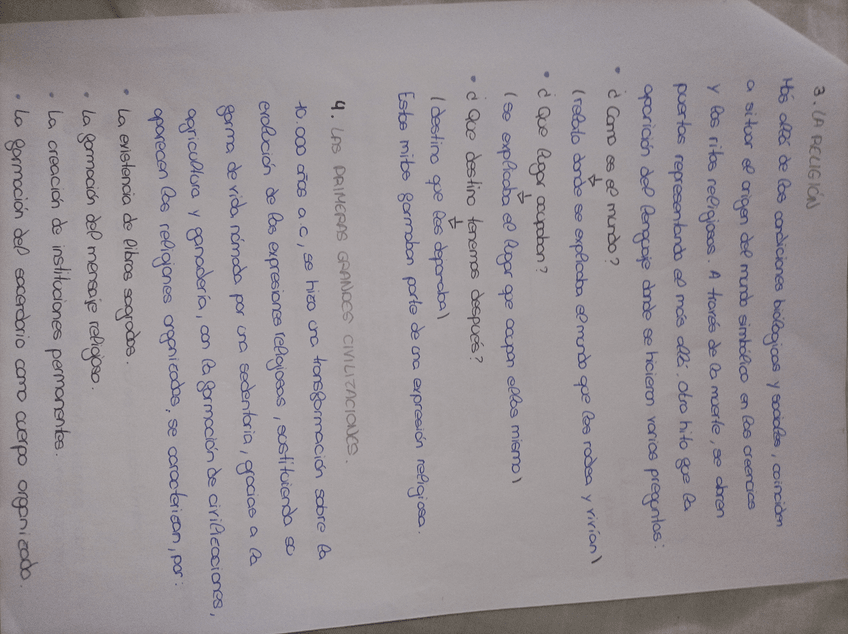 3. LA RELIGIÓN
Más allá de las condiciones biológicas y sociales, coinciden
a situar el origen del mundo simbólico en las creencias
y los ritos religiosos. A través de la muerte, se abren
puertas representando el más allá. Otro hito que la
aparición del lenguaje donde se hicieron varias preguntas:
• ¿Como es el mundo?
↓
(relato donde se explicaba el mundo que les rodea y vivían)
• ¿Que lugar ocupaban?
↓
(se explicaba el lugar que ocupan ellos mismo)
• ¿Que destino tenemos después?
↓
(destino que les deparaba)
Estos mitos formaban parte de una expresión religiosa.
4. LAS PRIMERAS GRANDES CIVILIZACIONES.
10.000 años a c, se hizo una transformación sobre la
evolución de las expresiones religiosas, sustituiendo su
forma de vida nómada por una sedentaria, gracias a la
agricultura y ganadería, con la formación de civilizaciones,
aparecen las religiones organizadas, se caracterizan, por:
• La existencia de libros sagrados.
• La formación del mensaje religioso.
• La creación de instituciones permanentes.
• La formación del sacerdocio como cuerpo organizado.